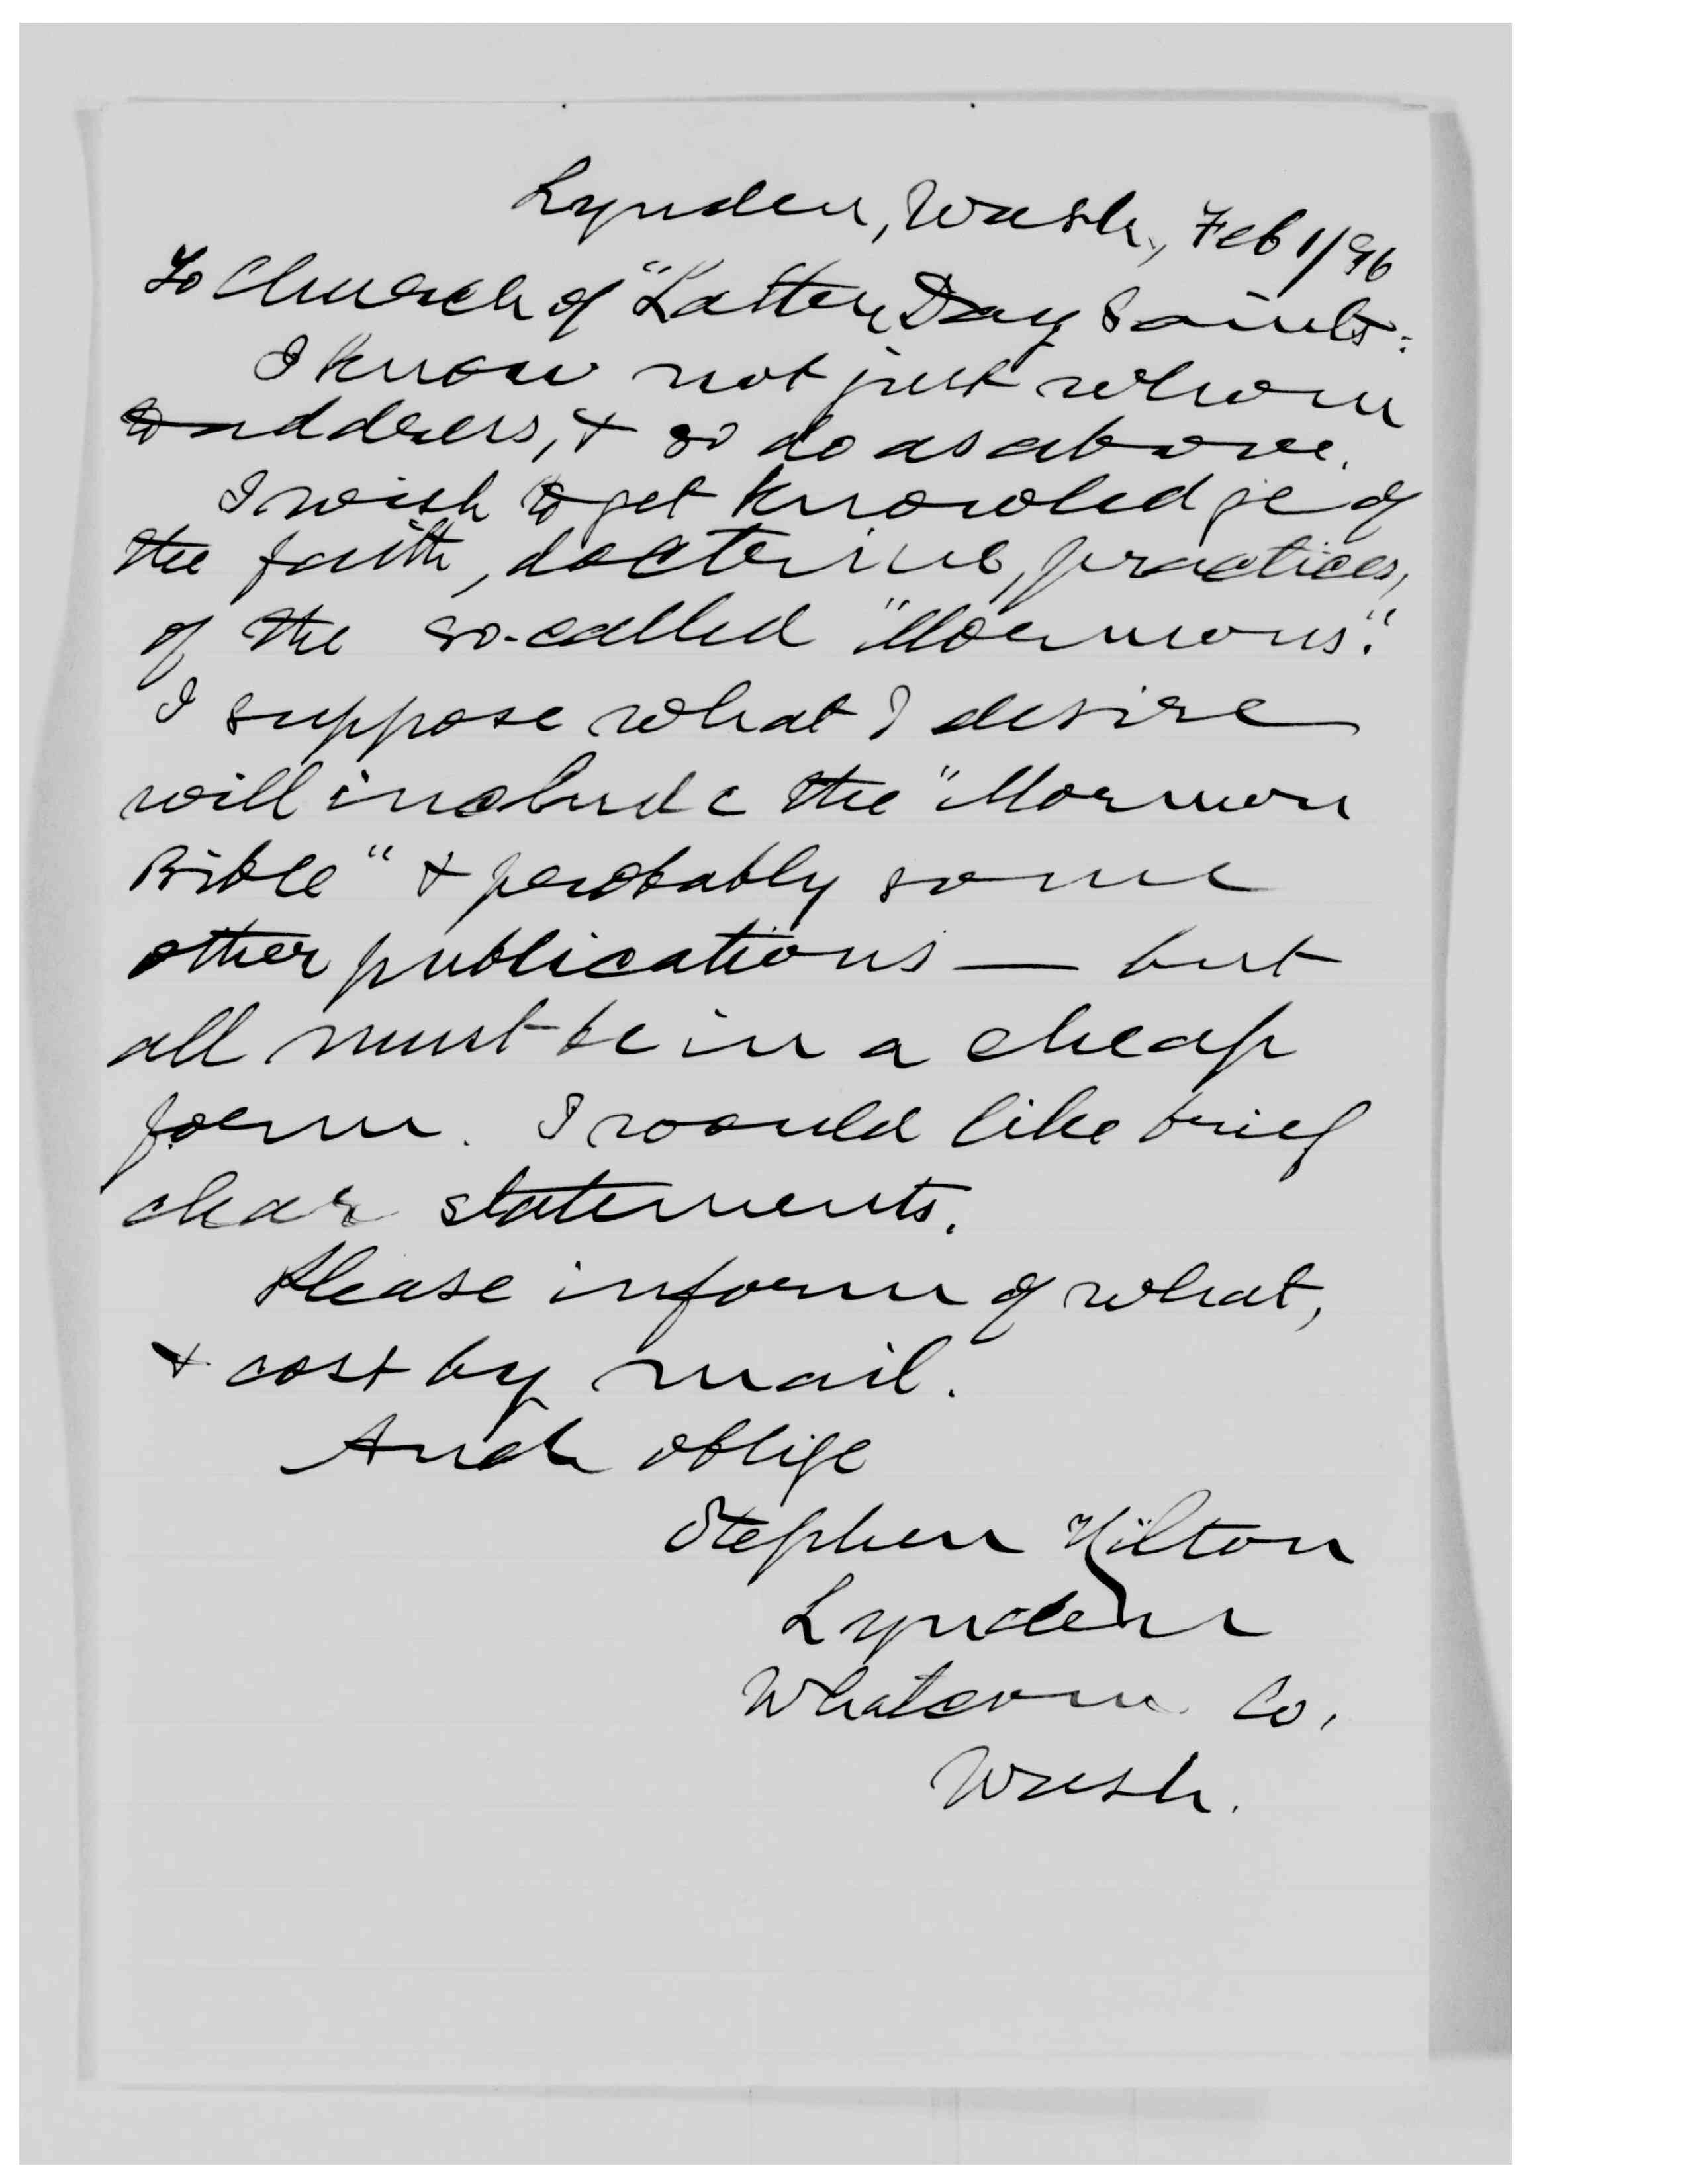 Lynden, Wash., Feb 1/96
To Church of "Latter Day Saints:
I know not just whom
to address, & so do as above.
I wish to get knowledge of
the faith, doctrine, practices,
of the so-called "Mormons".
I suppose what I desire
will include the "Mormon
Bible" & probably some
other publications — but
all must be in a cheap
form. I would like brief
clear statements.
Please inform of what,
& cost by mail.
And oblige
Stephen Hilton
Lynden
Whatcom Co,
Wash.